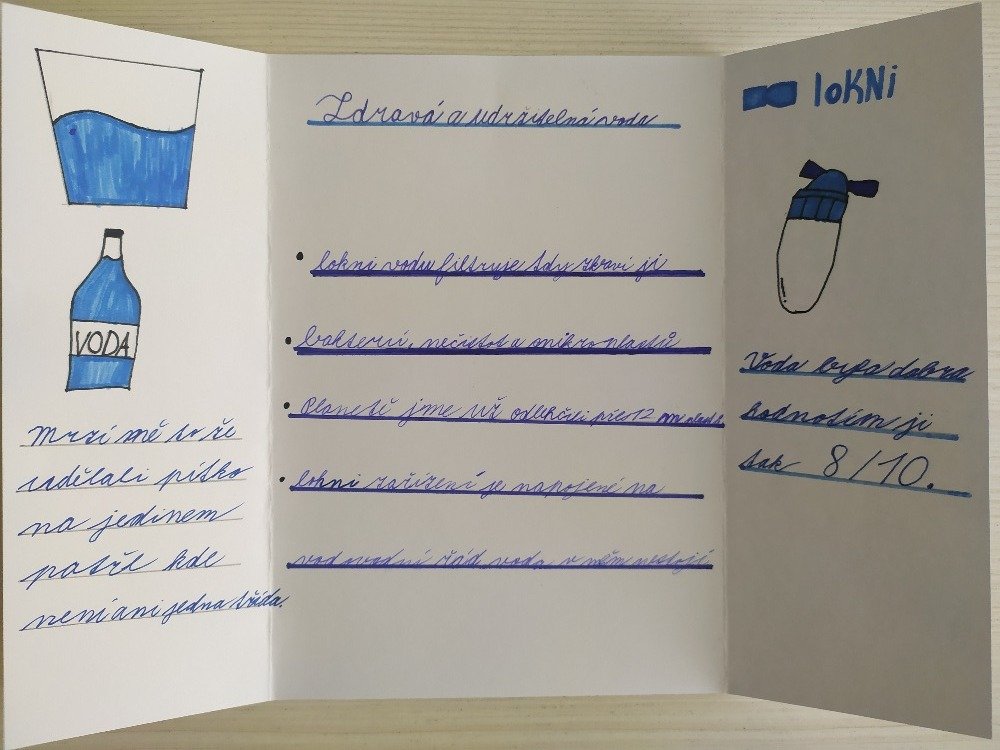 VODA
Mrzí mě to že
udělali pítko
na jedinem
patře kde
není ani jedna třída.
Zdravá a udržitelná voda
• lokni vodu filtruje tdy zbaví ji
• bakterií, nečistot a mikroplastů
• Planetě jme už odlehčili přes 12
• lokni zařízení je napojené na
vodovodní řád voda v něm nestojí
lokni
Voda byla dobra
hodnotím ji
tak 8/10.